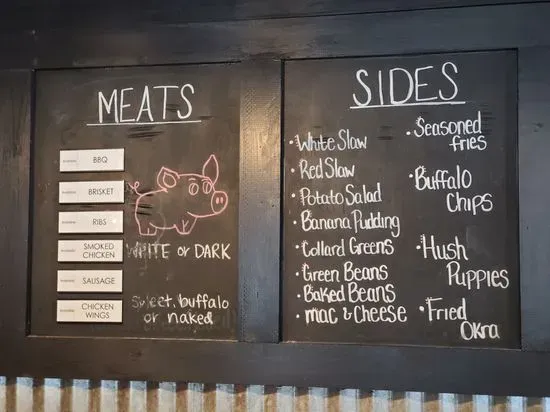 MEATS
BBQ
BRISKET
RIBS
SMOKED
CHICKEN
WHITE or DARK
SAUSAGE
CHICKEN
WINGS
Sweet, buffalo
or naked
SIDES
• White Slaw
• Red Slaw
• Potato Salad
• Banana Pudding
• Collard Greens
• Green Beans
• Baked Beans
• mac & Cheese
• Seasoned
fries
• Buffalo
Chips
• Hush
Puppies
• Fried
Okra